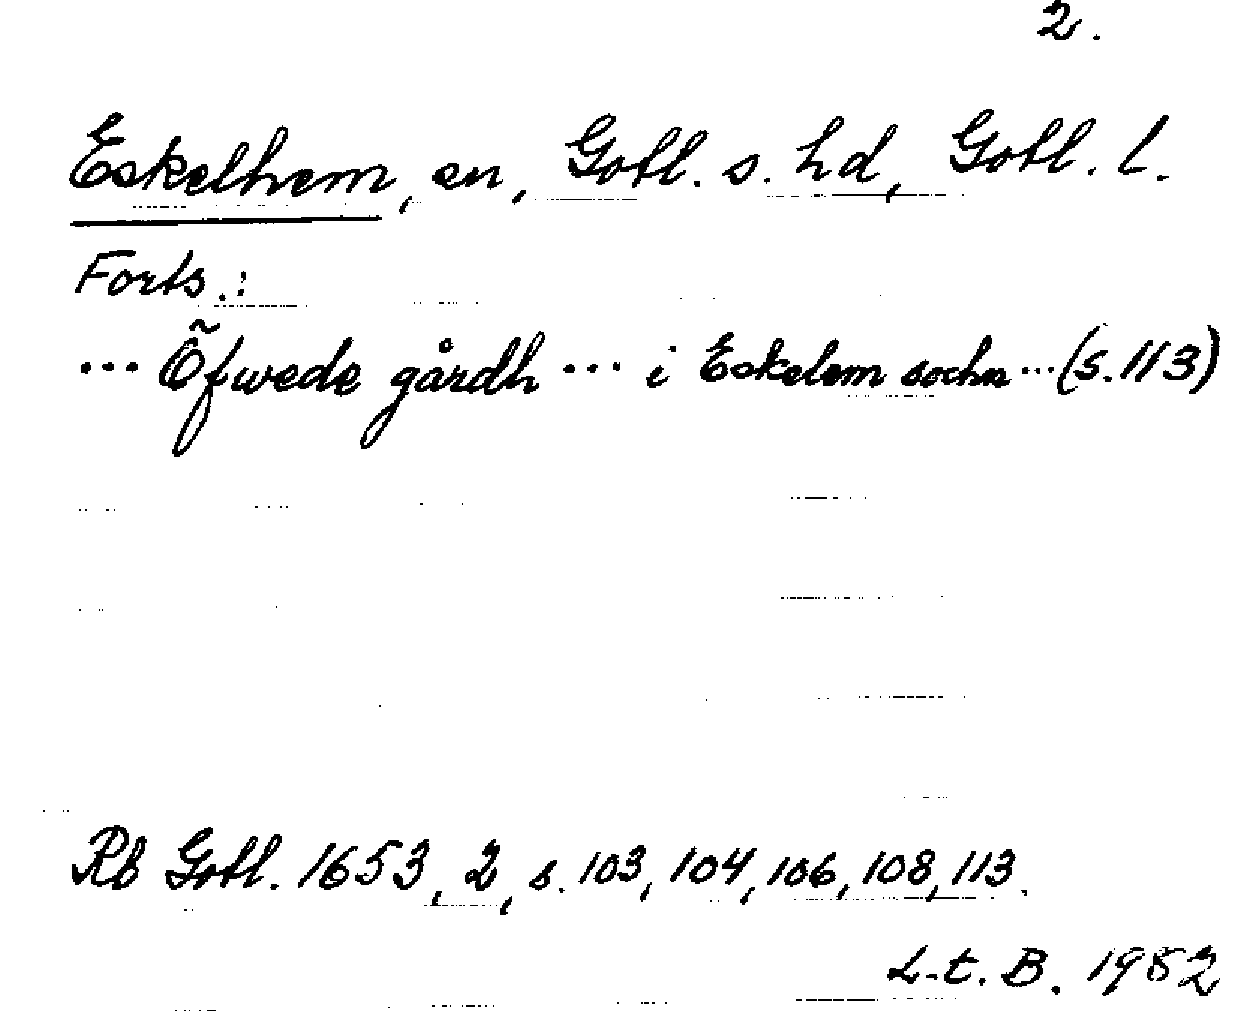 2.
Eskelhem, en, Gotl. s. hd, Gotl. l.
Forts.:
... Õfwede gårdh ... i Eskelem sochn ... (s. 113)
Rb Gotl. 1653, 2, s. 103, 104, 106, 108, 113.
L-t. B. 1952